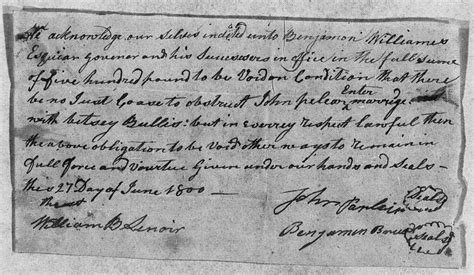 We acknowledge our Selves indebted unto Benjamon Williames
Esquiar Govenor and his Successors in office in the full sume
of five hundred pound to be Void on Condition that there
be no Just Coase to obstruct John
Enter
marridge
with betsey Bullis: but in everrey respect lawful then
the above obligation to be Void other ways to remain in
full force and Vourtue Given under our hands and Seals
this 27 Day of June 1800
William B Lenoir
John (Seal)
Benjamon (Seal)